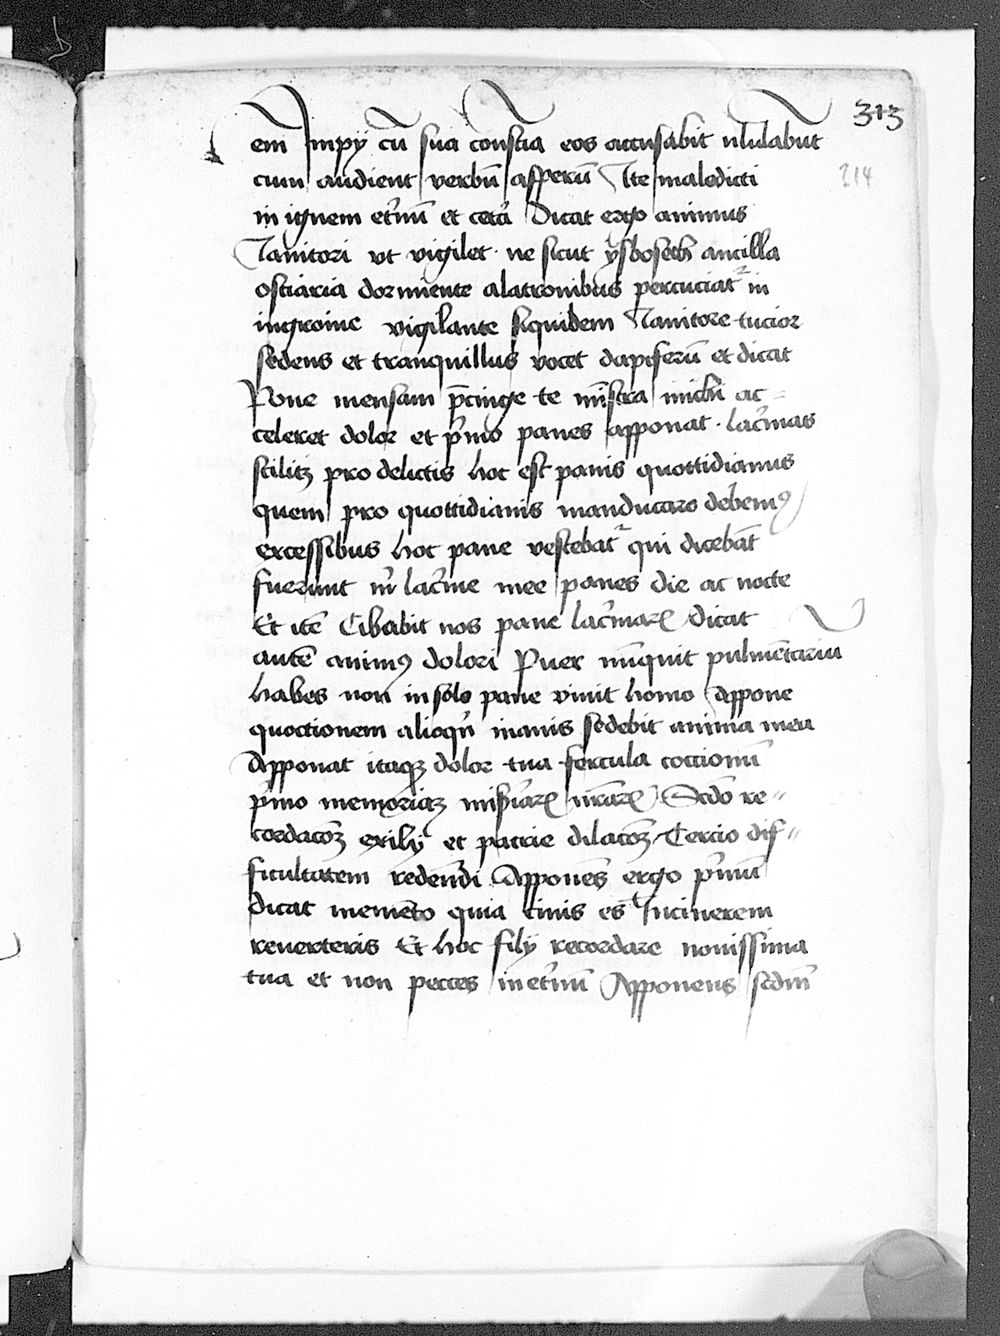 313
214
em̄ Impy cū sua conscīa eos accusabit ululabūt
cum audient verbū asperū Ite maledicti
in ignem et̓nū et cet̓a Dicat ergo animus
Ianitori vt vigilet · ne sicut ysboseth ancilla
ostiaria dormiente alatronibus percuciat᷑ in
ingwine vigilante siquidem Ianitore tucior
sedens et tranquillus vocet dapiferū et dicat
Pone mensam p̄cinge te mīstra michi ac=
celeret dolor et p̓mo panes apponat · lac̓mas
scilicꝫ pro delictis hoc est panis quottidianus
quem pro quottidianis manducare debemꝰ
excessibus hoc pane vescebat᷑ qui dicebāt
fuerunt m̓ lac̓me mee panes die ac nocte
Et itē Cibabit nos pane lac̓maꝝ Dicat
autē animꝰ dolori Puer nūquit pulmētariū
habes non in solo pane viuit homo Appone
quoctionem alioqn̄ inanis sedebit anima mea
Apponat itaqꝫ dolor tua fercula coccionū
p̓mo memoriaꝫ mis̓iaꝝ nr̄aꝝ Scd̄o re=
cordacōꝫ exilij et patrie dilacōꝫ Tercio dif=
ficultatem redeundi Apponens ergo p̓mū
dicat memēto quia cinis es Incinerem
reuerteris Et hoc filij recordare nouissima
tua et non pecces in et̓nū Apponens secd̄m